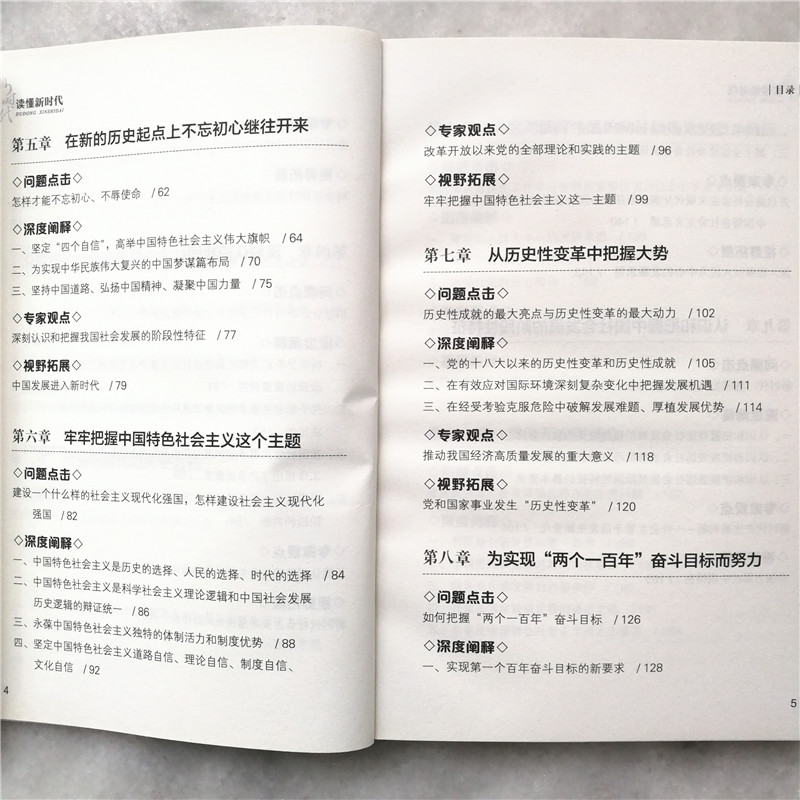 读懂新时代
DUDONG XINSHIDAI
第五章 在新的历史起点上不忘初心继往开来
◇问题点击◇
怎样才能不忘初心、不辱使命 /62
◇深度阐释◇
一、坚定“四个自信”，高举中国特色社会主义伟大旗帜 /64
二、为实现中华民族伟大复兴的中国梦谋篇布局 /70
三、坚持中国道路、弘扬中国精神、凝聚中国力量 /75
◇专家观点◇
深刻认识和把握我国社会发展的阶段性特征 /77
◇视野拓展◇
中国发展进入新时代 /79
第六章 牢牢把握中国特色社会主义这个主题
◇问题点击◇
建设一个什么样的社会主义现代化强国，怎样建设社会主义现代化
强国 /82
◇深度阐释◇
一、中国特色社会主义是历史的选择、人民的选择、时代的选择 /84
二、中国特色社会主义是科学社会主义理论逻辑和中国社会发展
历史逻辑的辩证统一 /86
三、永葆中国特色社会主义独特的体制活力和制度优势 /88
四、坚定中国特色社会主义道路自信、理论自信、制度自信、
文化自信 /92
4
目录
◇专家观点◇
改革开放以来党的全部理论和实践的主题 /96
◇视野拓展◇
牢牢把握中国特色社会主义这一主题 /99
第七章 从历史性变革中把握大势
◇问题点击◇
历史性成就的最大亮点与历史性变革的最大动力 /102
◇深度阐释◇
一、党的十八大以来的历史性变革和历史性成就 /105
二、在有效应对国际环境深刻复杂变化中把握发展机遇 /111
三、在经受考验克服危险中破解发展难题、厚植发展优势 /114
◇专家观点◇
推动我国经济高质量发展的重大意义 /118
◇视野拓展◇
党和国家事业发生“历史性变革” /120
第八章 为实现“两个一百年”奋斗目标而努力
◇问题点击◇
如何把握“两个一百年”奋斗目标 /126
◇深度阐释◇
一、实现第一个百年奋斗目标的新要求 /128
5